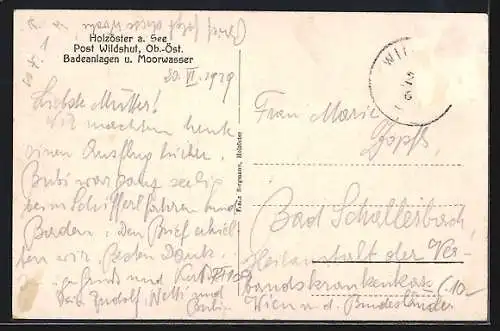 Brief folgt dieser Woche, u. K.
Holzöster a. See
Post Wildshut, Ob.-Öst.
Badeanlagen u. Moorwasser
20. VI. 1929
Liebste Mutter!
Wir machten heute
einen Ausflug hieher.
Bubi war ganz seelig
beim Schifferlfahren und
Baden. Den Brief erhiel-
ten wir. Besten Dank.
Gesund und
Rudolf, Netti und
Bubi
Franz Bergmann, Holzöster
WIL
Frau Marie
Zopf
Bad Schallerbach,
Heilanstalt der Ver-
bandskrankenkasse
Wien u. d. Bundesländer